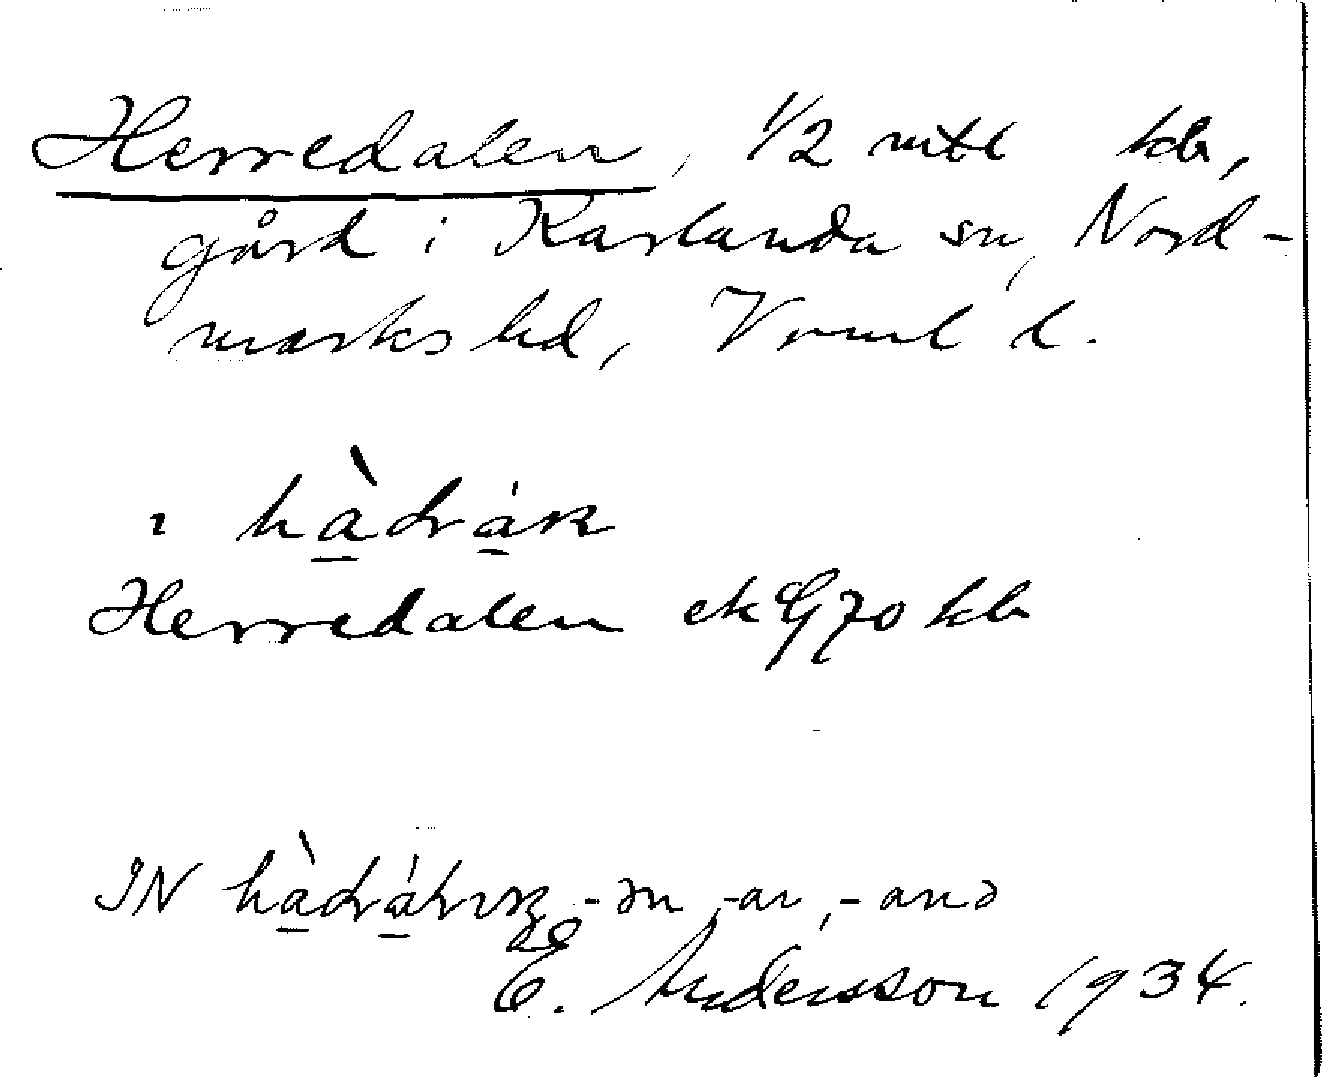 Herredalen, 1/2 mtl kb,
gård i Karlanda sn, Nord-
marks hd, Vrml l.
ı hàdrák
Herredalen ekG70 kb
IN hàdrák -ən, -ar, -anə
E. Andersson 1934.